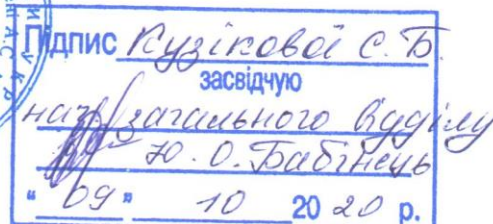 Підпис Кузікової С.Б.
засвідчую
нач. загального відділу
Ю.О.Бабінець
"09" 10 2020 р.